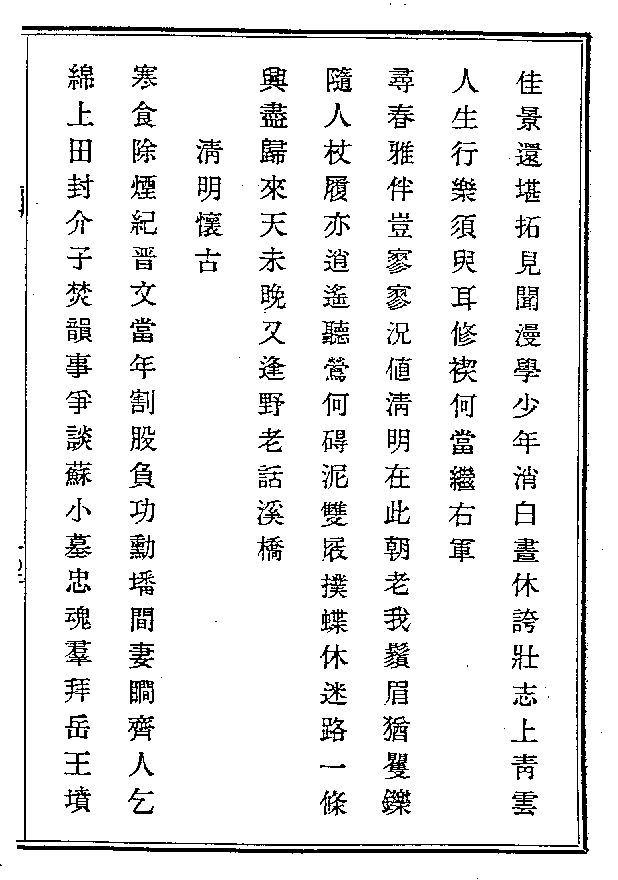 佳景還堪拓見聞漫學少年消白晝休誇壯志上靑雲
人生行樂須臾耳修禊何當繼右軍
尋春雅伴豈寥寥況値淸明在此朝老我鬚眉猶矍鑠
隨人杖履亦逍遙聽鶯何碍泥雙屐撲蝶休迷路一條
興盡歸來天未晚又逢野老話溪橋
淸明懷古
寒食除煙紀晉文當年割股負功勳墦間妻瞷齊人乞
綿上田封介子焚韻事爭談蘇小墓忠魂羣拜岳王墳